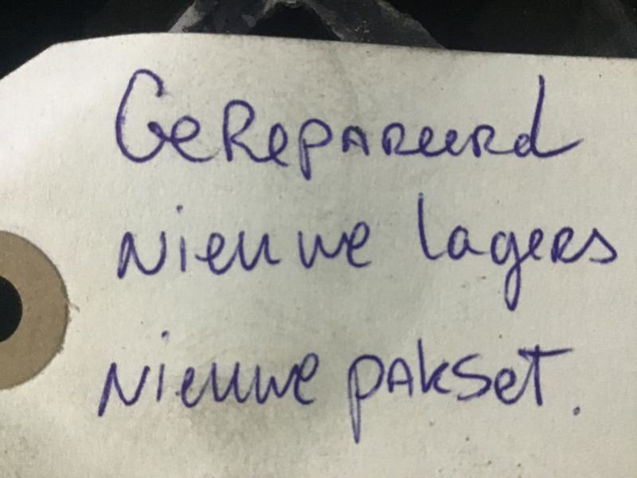 Gerepareerd
nieuwe lagers
nieuwe pakset.